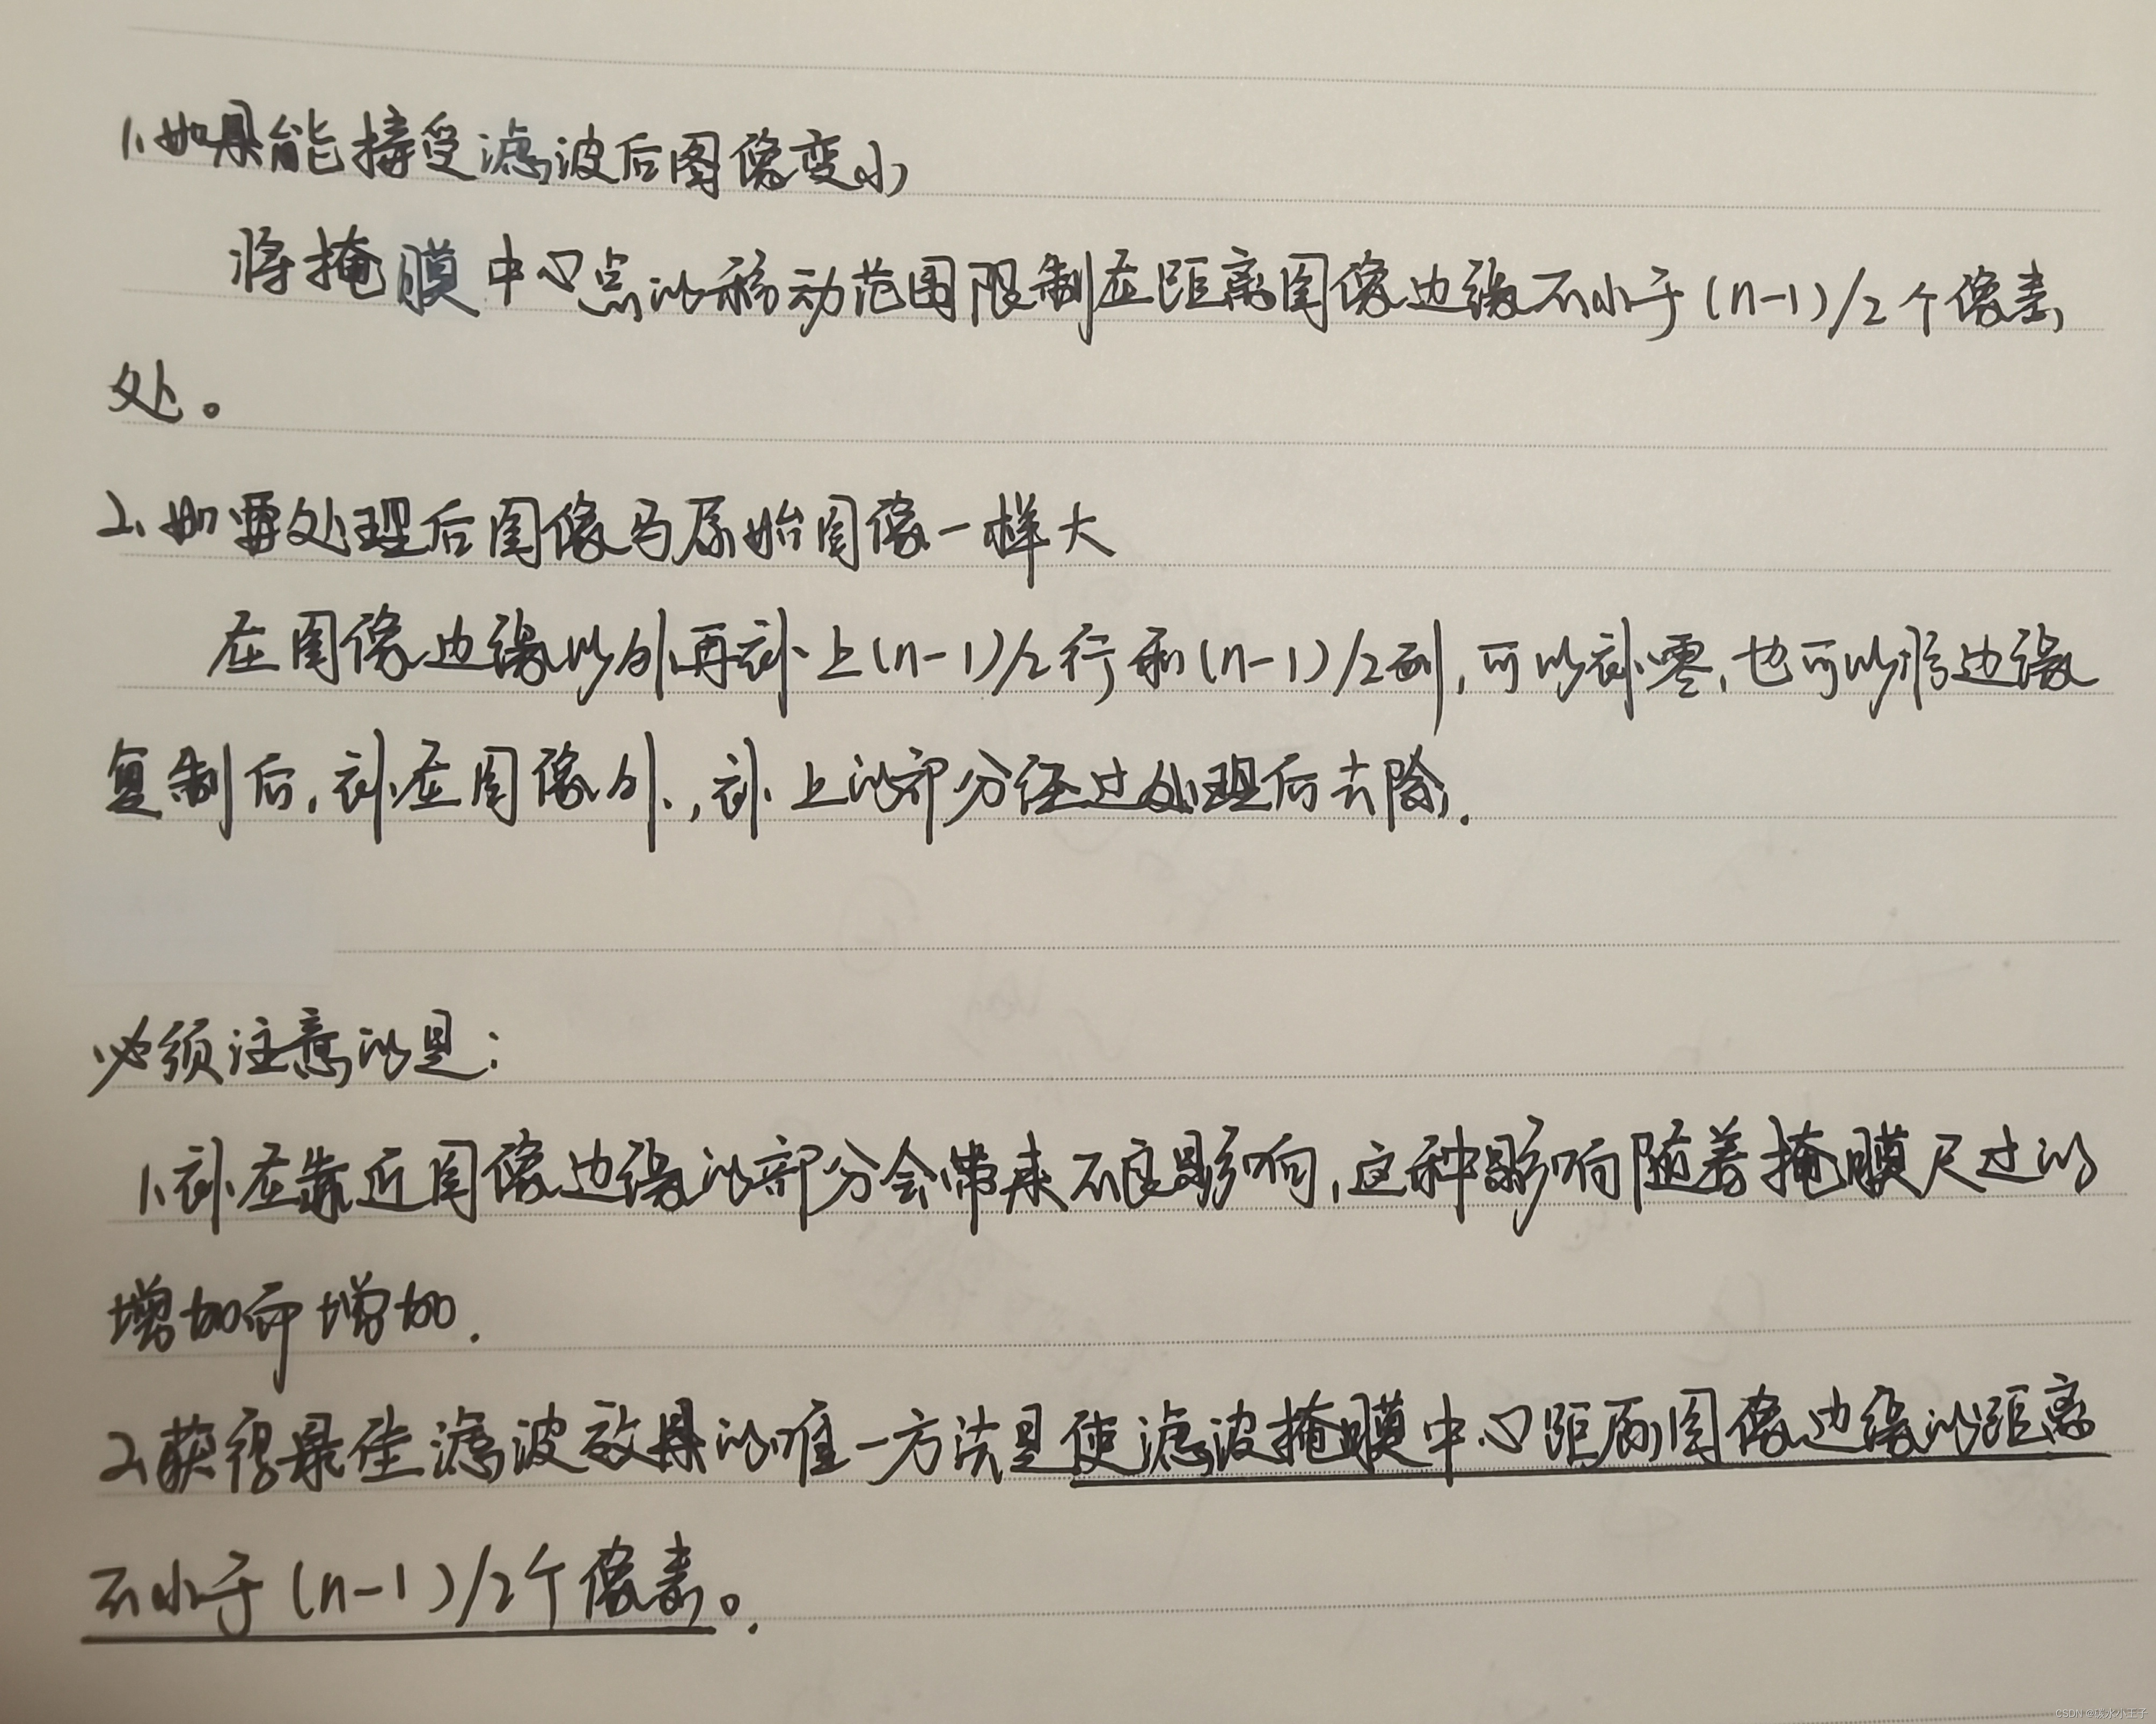 1、如果能接受滤波后图像变小
将掩膜中心点的移动范围限制在距离图像边缘不小于(n-1)/2个像素
处。
2、如要处理后图像与原始图像一样大
在图像边缘以外再补上(n-1)/2行和(n-1)/2列,可以补零,也可以将边缘
复制后,补在图像外,补上的部分经过处理后去除.
必须注意的是:
1、补在靠近图像边缘的部分会带来不良影响,这种影响随着掩膜尺过的
增加而增加.
2、获得最佳滤波效果的唯一方法是使滤波掩膜中心距原图像边缘的距离
不小于(n-1)/2个像素。.
CSDN @碳水小王子